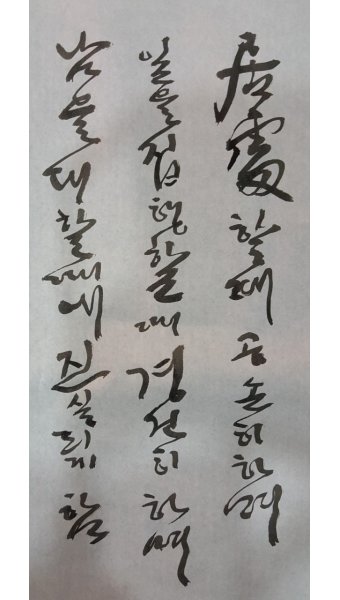 居處할때 공손히하며
일을집행할때 경건히하며
남을대할때에 진실되게 함